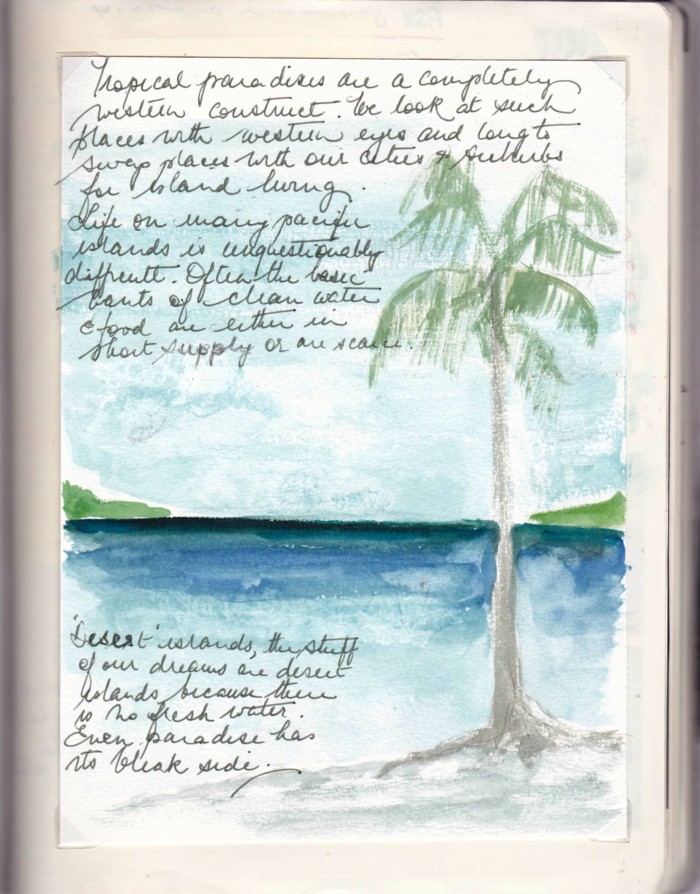 Tropical paradises are a completely
western construct. We look at such
places with western eyes and long to
swap places with our cities & suburbs
for island living.
Life on many pacific
islands is unquestionably
difficult. Often the basic
wants of clean water
& food are either in
short supply or are scarce.
'Desert' islands, the stuff
of our dreams are desert
islands because there
is no fresh water.
Even paradise has
its bleak side.